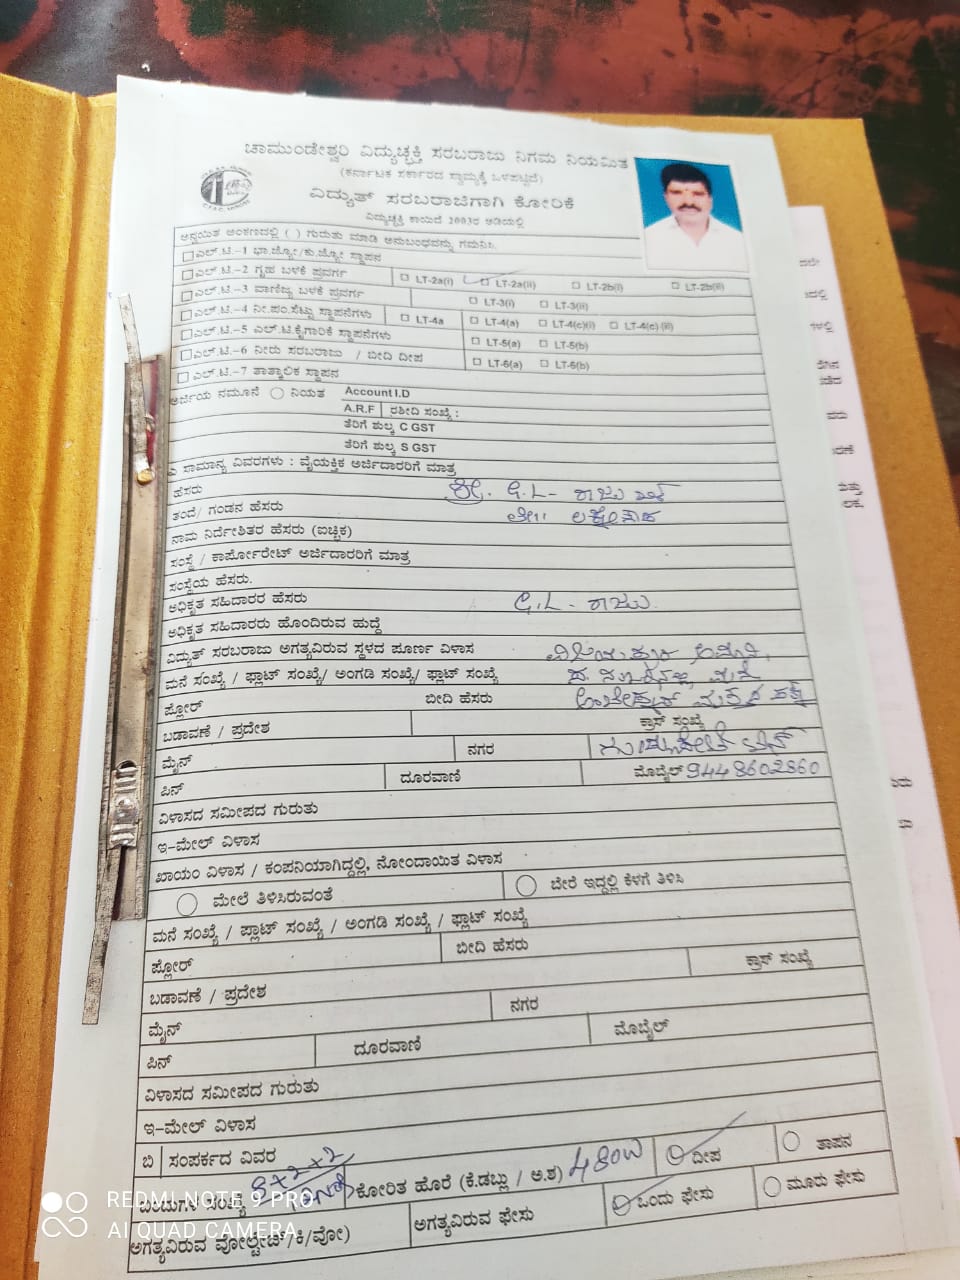 ಚಾಮುಂಡೇಶ್ವರಿ ವಿದ್ಯುಚ್ಛಕ್ತಿ ಸರಬರಾಜು ನಿಗಮ ನಿಯಮಿತ
(ಕರ್ನಾಟಕ ಸರ್ಕಾರದ ಸ್ವಾಮ್ಯಕ್ಕೆ ಒಳಪಟ್ಟಿದೆ)
ವಿದ್ಯುತ್ ಸರಬರಾಜಿಗಾಗಿ ಕೋರಿಕೆ
ವಿದ್ಯುಚ್ಛಕ್ತಿ ಕಾಯಿದೆ 2003ರ ಅಡಿಯಲ್ಲಿ
ಅನ್ವಯಿತ ಅಂಕಣದಲ್ಲಿ ( ) ಗುರುತು ಮಾಡಿ ಅನುಬಂಧವನ್ನು ಗಮನಿಸಿ.
ಎಲ್.ಟಿ.-1 ಭಾ.ಜ್ಯೋ/ಕು.ಜ್ಯೋ ಸ್ಥಾಪನ
ಎಲ್.ಟಿ.-2 ಗೃಹ ಬಳಕೆ ಪ್ರವರ್ಗ LT-2a(i) LT-2a(ii) LT-2b(i) LT-2b(ii)
ಎಲ್.ಟಿ.-3 ವಾಣಿಜ್ಯ ಬಳಕೆ ಪ್ರವರ್ಗ LT-3(i) LT-3(ii)
ಎಲ್.ಟಿ.-4 ನೀ.ಪಂ.ಸೆಟ್ಟು ಸ್ಥಾಪನೆಗಳು LT-4a LT-4(a) LT-4(c)(i) LT-4(c) (ii)
ಎಲ್.ಟಿ.-5 ಎಲ್.ಟಿ.ಕೈಗಾರಿಕೆ ಸ್ಥಾಪನೆಗಳು LT-5(a) LT-5(b)
ಎಲ್.ಟಿ.-6 ನೀರು ಸರಬರಾಜು / ಬೀದಿ ದೀಪ LT-6(a) LT-6(b)
ಎಲ್.ಟಿ.-7 ತಾತ್ಕಾಲಿಕ ಸ್ಥಾಪನ
ಅರ್ಜಿಯ ನಮೂನೆ ನಿಯತ Account I.D
A.R.F ರಶೀದಿ ಸಂಖ್ಯೆ :
ತೆರಿಗೆ ಶುಲ್ಕ C GST
ತೆರಿಗೆ ಶುಲ್ಕ S GST
ಎ ಸಾಮಾನ್ಯ ವಿವರಗಳು : ವೈಯಕ್ತಿಕ ಅರ್ಜಿದಾರರಿಗೆ ಮಾತ್ರ
ಹೆಸರು ಶ್ರೀ. G.L- ರಾಜು
ತಂದೆ/ ಗಂಡನ ಹೆಸರು
ನಾಮ ನಿರ್ದೇಶಿತರ ಹೆಸರು (ಐಚ್ಛಿಕ)
ಸಂಸ್ಥೆ / ಕಾರ್ಪೋರೇಟ್ ಅರ್ಜಿದಾರರಿಗೆ ಮಾತ್ರ
ಸಂಸ್ಥೆಯ ಹೆಸರು.
ಅಧಿಕೃತ ಸಹಿದಾರರ ಹೆಸರು G.L- ರಾಜು.
ಅಧಿಕೃತ ಸಹಿದಾರರು ಹೊಂದಿರುವ ಹುದ್ದೆ
ವಿದ್ಯುತ್ ಸರಬರಾಜು ಅಗತ್ಯವಿರುವ ಸ್ಥಳದ ಪೂರ್ಣ ವಿಳಾಸ
ಮನೆ ಸಂಖ್ಯೆ / ಫ್ಲಾಟ್ ಸಂಖ್ಯೆ/ ಅಂಗಡಿ ಸಂಖ್ಯೆ/ ಫ್ಲಾಟ್ ಸಂಖ್ಯೆ
ಫ್ಲೋರ್ ಬೀದಿ ಹೆಸರು
ಬಡಾವಣೆ / ಪ್ರದೇಶ ಕ್ರಾಸ್ ಸಂಖ್ಯೆ
ಮೈನ್ ನಗರ
ಪಿನ್ ದೂರವಾಣಿ ಮೊಬೈಲ್ 9448602860
ವಿಳಾಸದ ಸಮೀಪದ ಗುರುತು
ಇ-ಮೇಲ್ ವಿಳಾಸ
ಖಾಯಂ ವಿಳಾಸ / ಕಂಪನಿಯಾಗಿದ್ದಲ್ಲಿ, ನೋಂದಾಯಿತ ವಿಳಾಸ
ಮೇಲೆ ತಿಳಿಸಿರುವಂತೆ ಬೇರೆ ಇದ್ದಲ್ಲಿ ಕೆಳಗೆ ತಿಳಿಸಿ
ಮನೆ ಸಂಖ್ಯೆ / ಪ್ಲಾಟ್ ಸಂಖ್ಯೆ / ಅಂಗಡಿ ಸಂಖ್ಯೆ / ಫ್ಲಾಟ್ ಸಂಖ್ಯೆ
ಫ್ಲೋರ್ ಬೀದಿ ಹೆಸರು
ಬಡಾವಣೆ / ಪ್ರದೇಶ ಕ್ರಾಸ್ ಸಂಖ್ಯೆ
ಮೈನ್ ನಗರ
ಪಿನ್ ದೂರವಾಣಿ ಮೊಬೈಲ್
ವಿಳಾಸದ ಸಮೀಪದ ಗುರುತು
ಇ-ಮೇಲ್ ವಿಳಾಸ
ಬಿ ಸಂಪರ್ಕದ ವಿವರ
ಕೋರಿತ ಹೊರೆ (ಕಿ.ಡಬ್ಲು / ಅ.ಶ) 480W ದೀಪ ತಾಪನ
ಅಗತ್ಯವಿರುವ ವೋಲ್ಟೇಜ್/ಕಿ/ವೋ) ಅಗತ್ಯವಿರುವ ಫೇಸು ಒಂದು ಫೇಸು ಮೂರು ಫೇಸು
REDMI NOTE 9 PRO
AI QUAD CAMERA